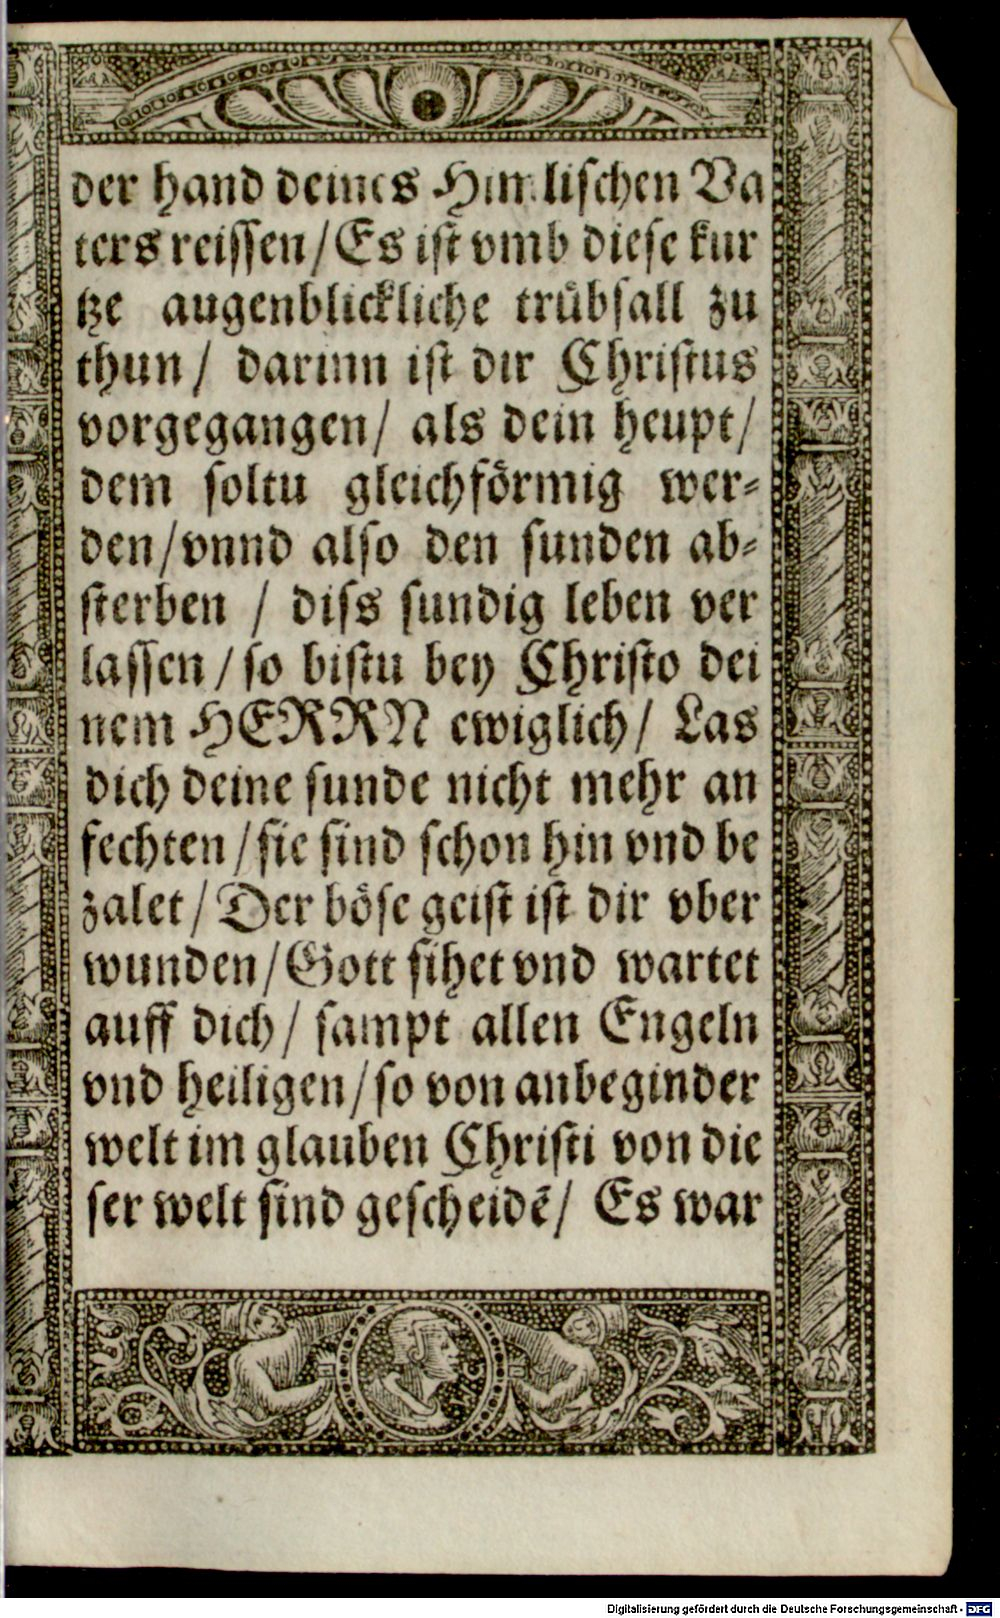 der hand deines Himlischen Va
ters reissen/Es ist vmb diese kur
tze augenblickliche trübsall zu
thun/ darinn ist dir Christus
vorgegangen/ als dein heupt/
dem soltu gleichförmig wer-
den/vnnd also den sunden ab-
sterben / diss sundig leben ver
lassen/so bistu bey Christo dei
nem HERRN ewiglich/ Las
dich deine sunde nicht mehr an
fechten/sie sind schon hin vnd be
zalet/Der böse geist ist dir vber
wunden/Gott sihet vnd wartet
auff dich/ sampt allen Engeln
vnd heiligen/so von anbeginder
welt im glauben Christi von die
ser welt sind gescheidē/ Es war
Digitalisierung gefördert durch die Deutsche Forschungsgemeinschaft - DFG